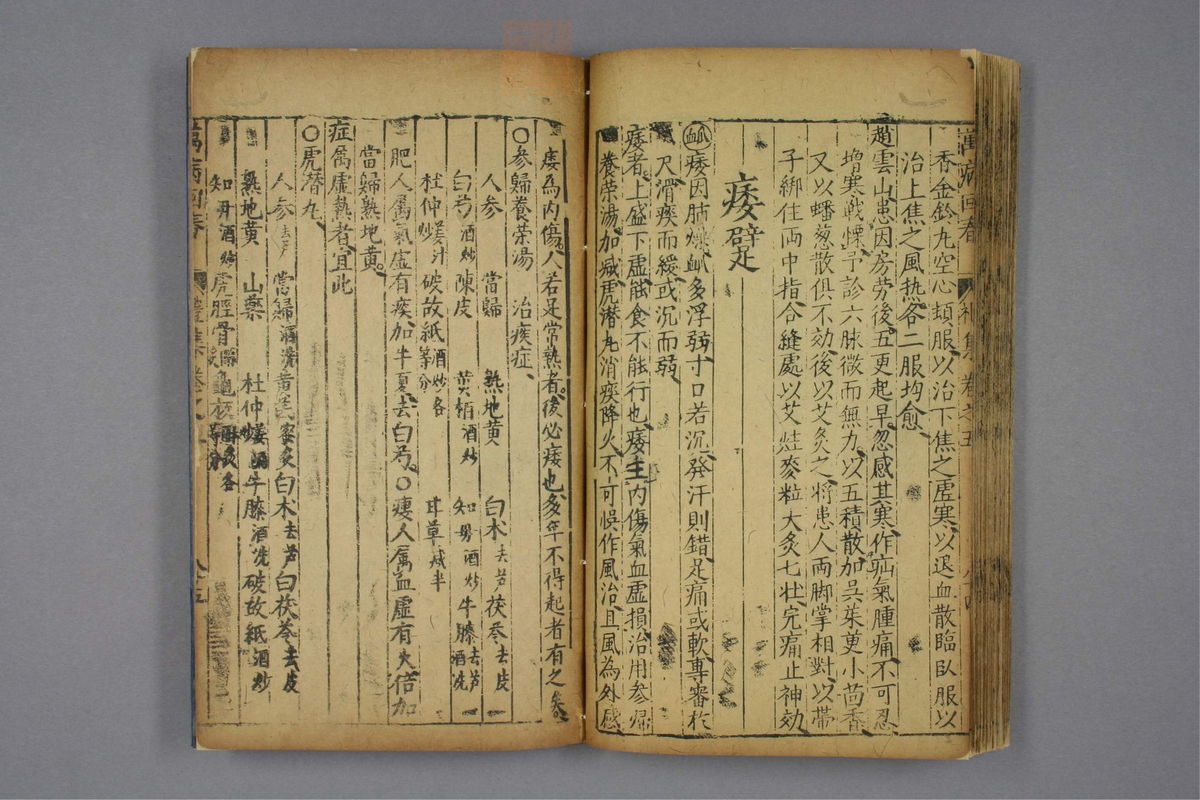 萬病回春 卷之五
香金鈴丸空心頓服以治下焦之虛寒以退血散臨臥服以
治上焦之風热各二服均愈
趙雲山患因房劳後五更起早忽感其寒作疝氣腫痛不可忍
增寒戰慄予診六脉微而無力以五積散加吳茱萸小茴香
又以蟠葱散俱不効後以艾灸之将患人両脚掌相對以帶
子綁住両中指合縫處以艾炷麥粒大灸七壮完痛止神効
痿躄
㊂痿因肺燥䘐多浮弱寸口若沉發汗則錯足痛或軟專審於
尺滑瘀而緩或沉而弱
痿者上盛下虛能食不能行也痿主内傷氣血虛損治用参帰
養荣湯加减虎潜丸消痰降火不可悞作風治且風為外感
痿為内傷人若足常熱者後必痿也多年不得起者有之矣
〇参歸養荣湯 治痿症
人参 當歸 熟地黄 白术去芦 茯苓去皮
白芍酒炒 陳皮 黄栢酒炒 知毋酒炒 牛膝去芦酒洗
杜仲炒 破故紙酒炒各等分 甘草减半
肥人属氣虛有痰加半夏去白芍〇瘦人属血虛有火倍加
當歸熟地黄
症属虛熱者宜此
〇虎潜丸
人参去芦 當歸酒洗 黄芪蜜炙 白术去芦 白茯苓去皮
熟地黄 山藥 杜仲炒 牛膝酒洗 破故紙酒炒
知毋酒炒 虎脛骨 龜板酥炙各等分
萬病回春